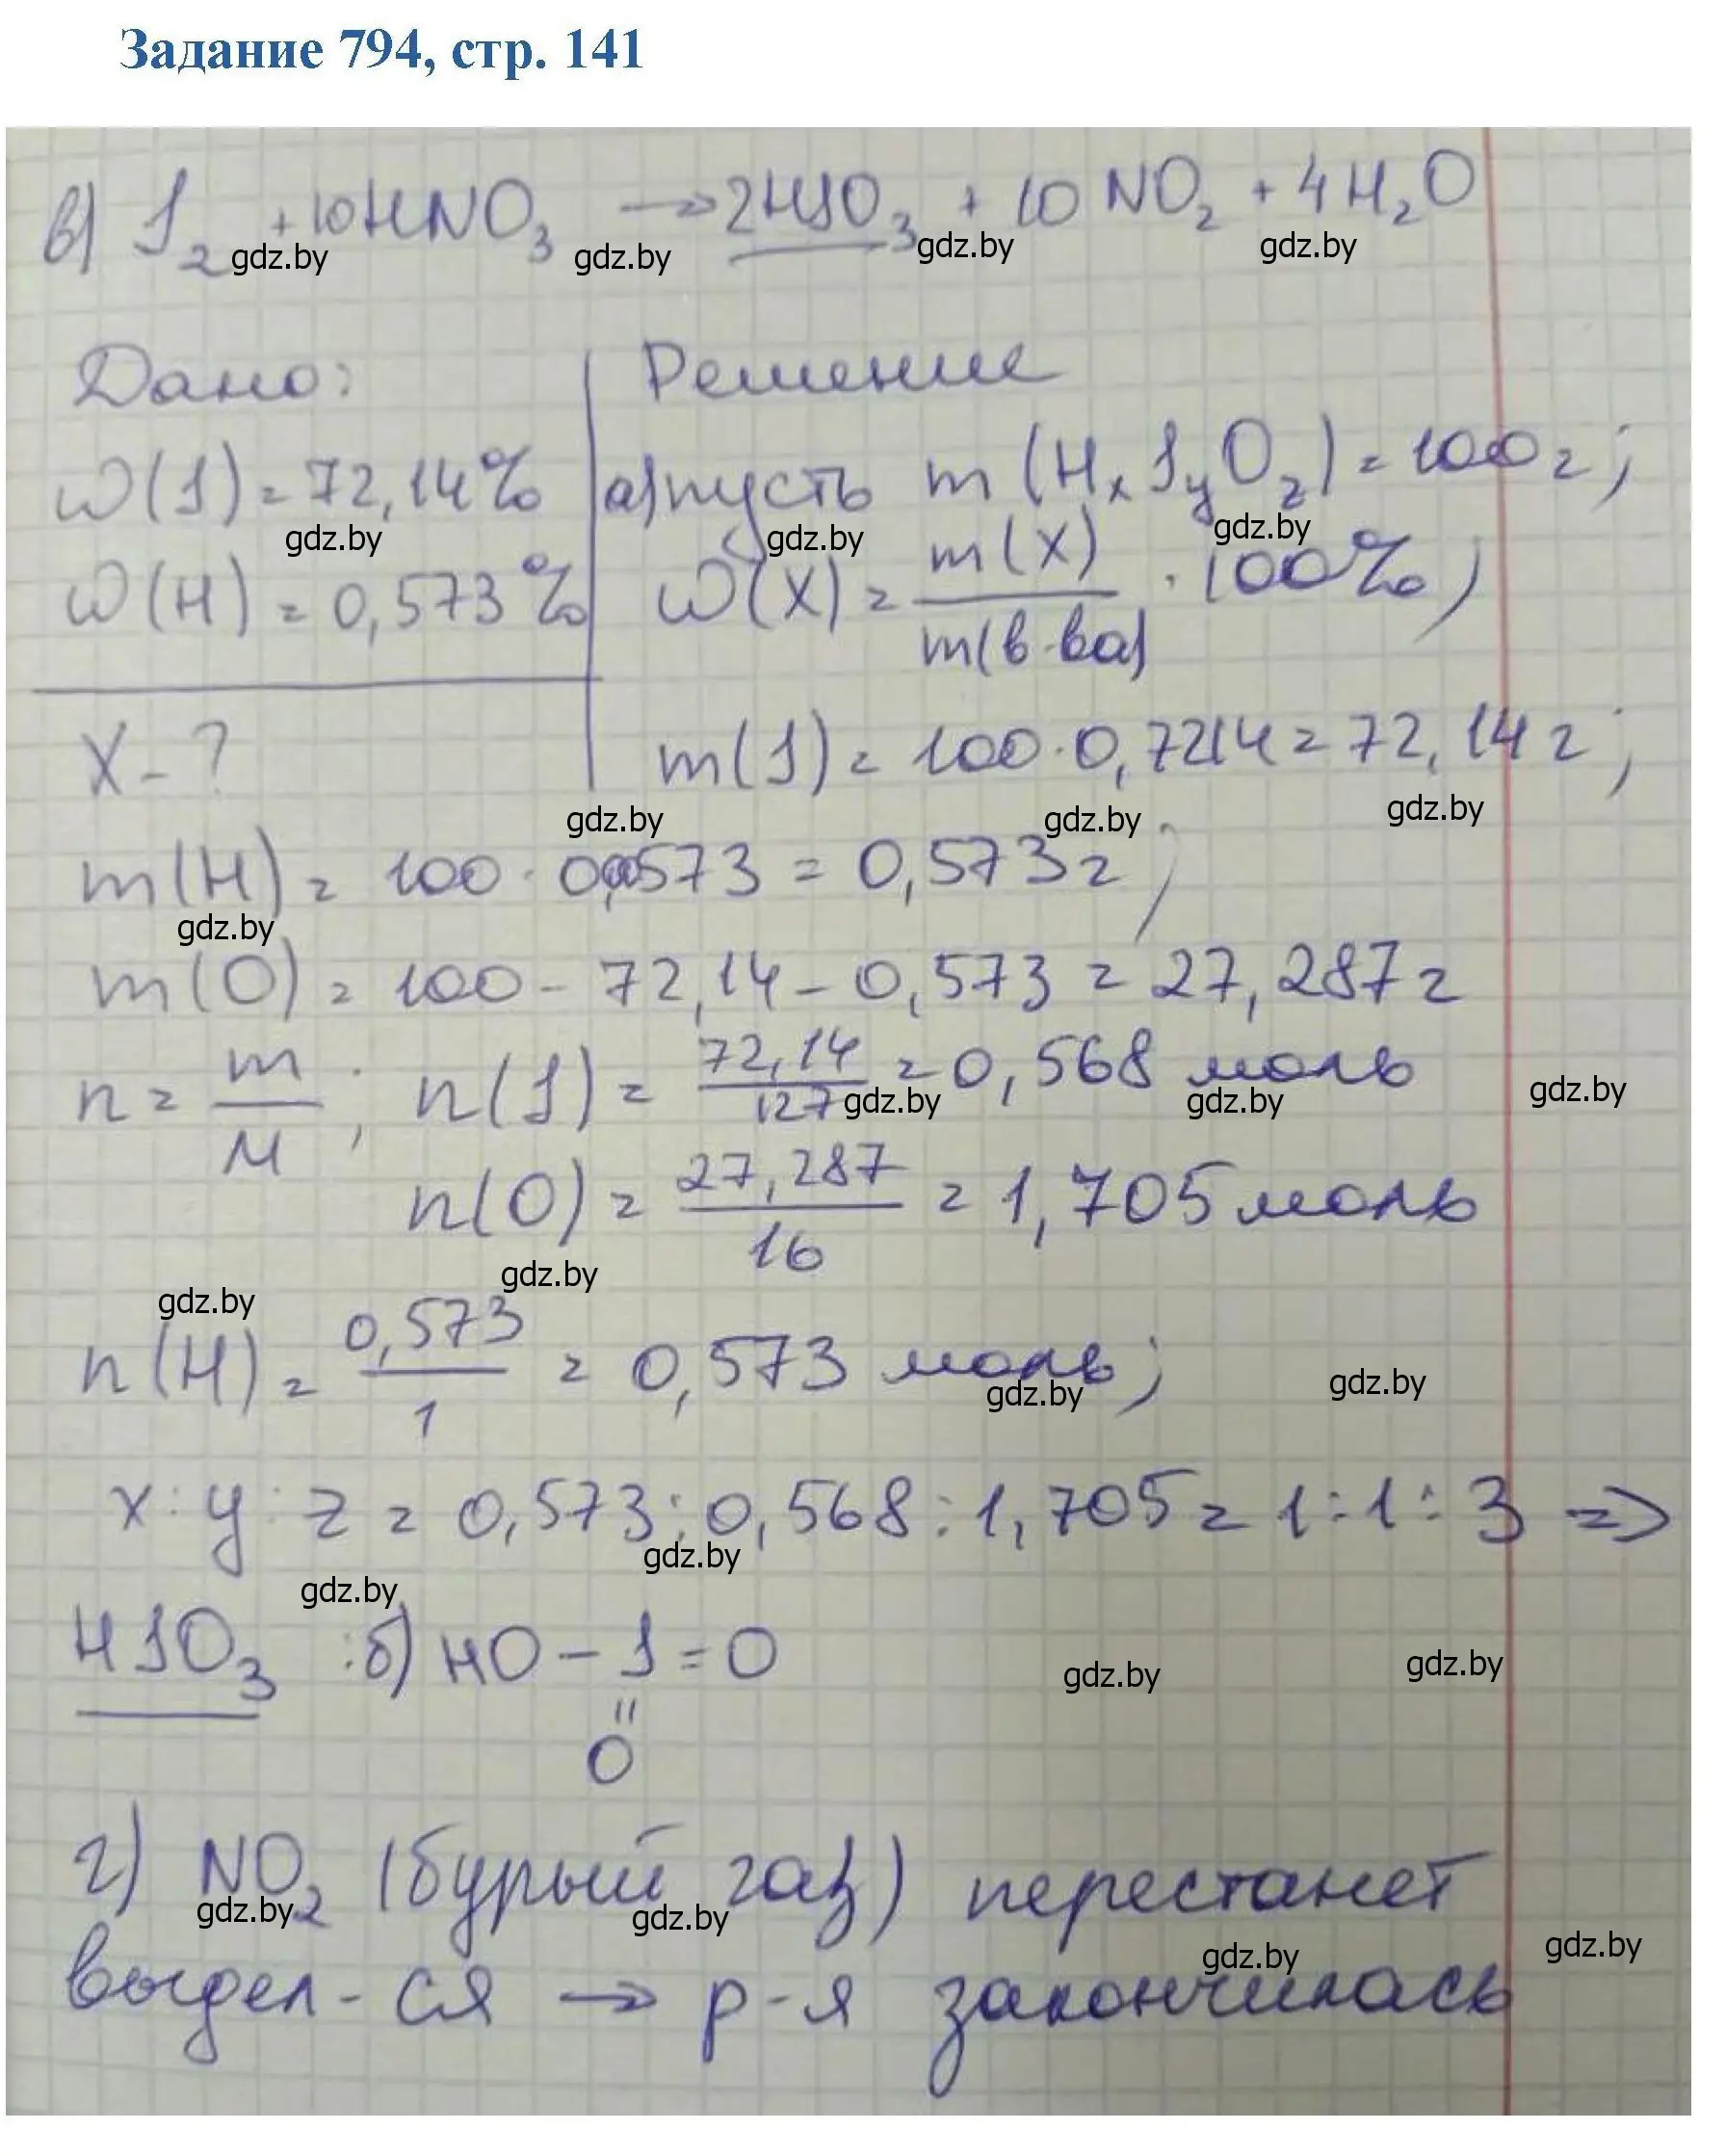 Задание 794, стр. 141
в) I₂ + 10HNO₃ → 2HIO₃ + 10 NO₂ + 4H₂O
gdz.by gdz.by gdz.by gdz.by
Дано: Решение
ω(I) = 72,14% а) пусть m (HₓIᵧO_z) = 100 г;
gdz.by gdz.by gdz.by
ω(H) = 0,573% ω(X) = m(X)/m(в-ва) · 100%;
X - ? m(I) = 100 · 0,7214 = 72,14 г;
gdz.by gdz.by gdz.by
m(H) = 100 · 0,00573 = 0,573 г;
gdz.by
m(O) = 100 - 72,14 - 0,573 = 27,287 г
n = m/M ; n(I) = 72,14/127 = 0,568 моль
gdz.by gdz.by gdz.by
n(O) = 27,287/16 = 1,705 моль
gdz.by gdz.by
n(H) = 0,573/1 = 0,573 моль;
gdz.by gdz.by
x : y : z = 0,573 : 0,568 : 1,705 = 1 : 1 : 3 =>
gdz.by gdz.by
HIO₃ ; б) HO – I = O
gdz.by gdz.by
"
O
г) NO₂ (бурый газ) перестанет
gdz.by gdz.by gdz.by gdz.by
выдел-ся → р-я закончилась